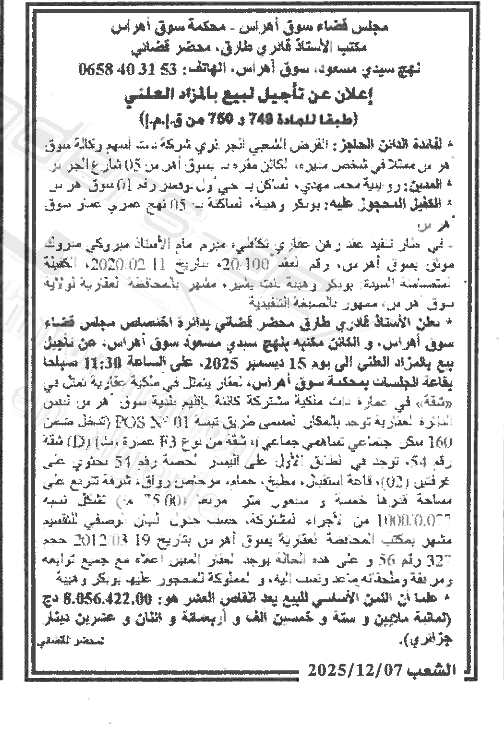 مجلس قضاء سوق أهراس - محكمة سوق أهراس
مكتب الأستاذ قادري طارق، محضر قضائي
نهج سيدي مسعود، سوق أهراس، الهاتف: 53 31 40 0658
إعلان عن تأجيل لبيع بالمزاد العلني
(طبقا للمادة 749 و 750 من ق.إ.م.إ)
• لفائدة الدائن الحاجز: القرض الشعبي الجزائري شركة ذات أسهم وكالة سوق
أهراس ممثلا في شخص مديره، الكائن مقره بـ سوق أهراس 05 شارع الجزائر
• المدين: محمد مهدي، الساكن بـ حي أول نوفمبر رقم 01 سوق أهراس
• الكفيل المحجوز عليه: بوبكر وهيبة، الساكنة بـ 05 نهج عمري عمار سوق
أهراس
- في إطار تنفيذ عقد رهن عقاري اتفاقي، مبرم أمام الأستاذ مبروكي مبروك
موثق بسوق أهراس، رقم العقد 20/100، بتاريخ 11-02-2020، الكفيلة
المتضامنة السيدة: بوبكر وهيبة بنت بشير، مشهر بالمحافظة العقارية لولاية
سوق أهراس، ممهور بالصيغة التنفيذية
• يعلن الأستاذ قادري طارق محضر قضائي بدائرة اختصاص مجلس قضاء
سوق أهراس، و الكائن مكتبه بنهج سيدي مسعود سوق أهراس، عن تأجيل
بيع بالمزاد العلني إلى يوم 15 ديسمبر 2025، على الساعة 11:30 صباحا
بقاعة الجلسات بمحكمة سوق أهراس، لعقار يتمثل في ملكية عقارية تمثل في
«شقة» في عمارة ذات ملكية مشتركة كائنة بإقليم بلدية سوق أهراس
العقارية توجد بالمكان المسمى طريق تبسة POS N° 01 (تدخل ضمن
160 سكن اجتماعي تساهمي جماعي) شقة من نوع F3 عمارة (D) شقة
رقم 54، توجد في الطابق الأول على اليسار الحصة رقم 54 تحتوي على
غرفتين (02)، قاعة استقبال، مطبخ، حمام، مرحاض رواق، شرفة تتربع على
مساحة قدرها خمسة و سبعون متر مربعا (75.00 م²) تشكل نسبة
1000/0.077 من الأجزاء المشتركة، حسب جدول البيان الوصفي للتقسيم
مشهر بمكتب المحافظة العقارية بسوق أهراس بتاريخ 2012/03/19 حجم
327 رقم 56 و على هذه الحالة يوجد العقار المبين أعلاه مع جميع توابعه
ومرافقه وملحقاته ماعدا ونسب إليه، و المملوكة للمحجوز عليها بوبكر وهيبة
• علما أن الثمن الأساسي للبيع بعد إنقاص العشر هو: 8.056.422.00 دج
(ثمانية ملايين و ستة و خمسين الف و أربعمائة و اثنان و عشرين دينار
جزائري).
المحضر القضائي
الشعب 2025/12/07